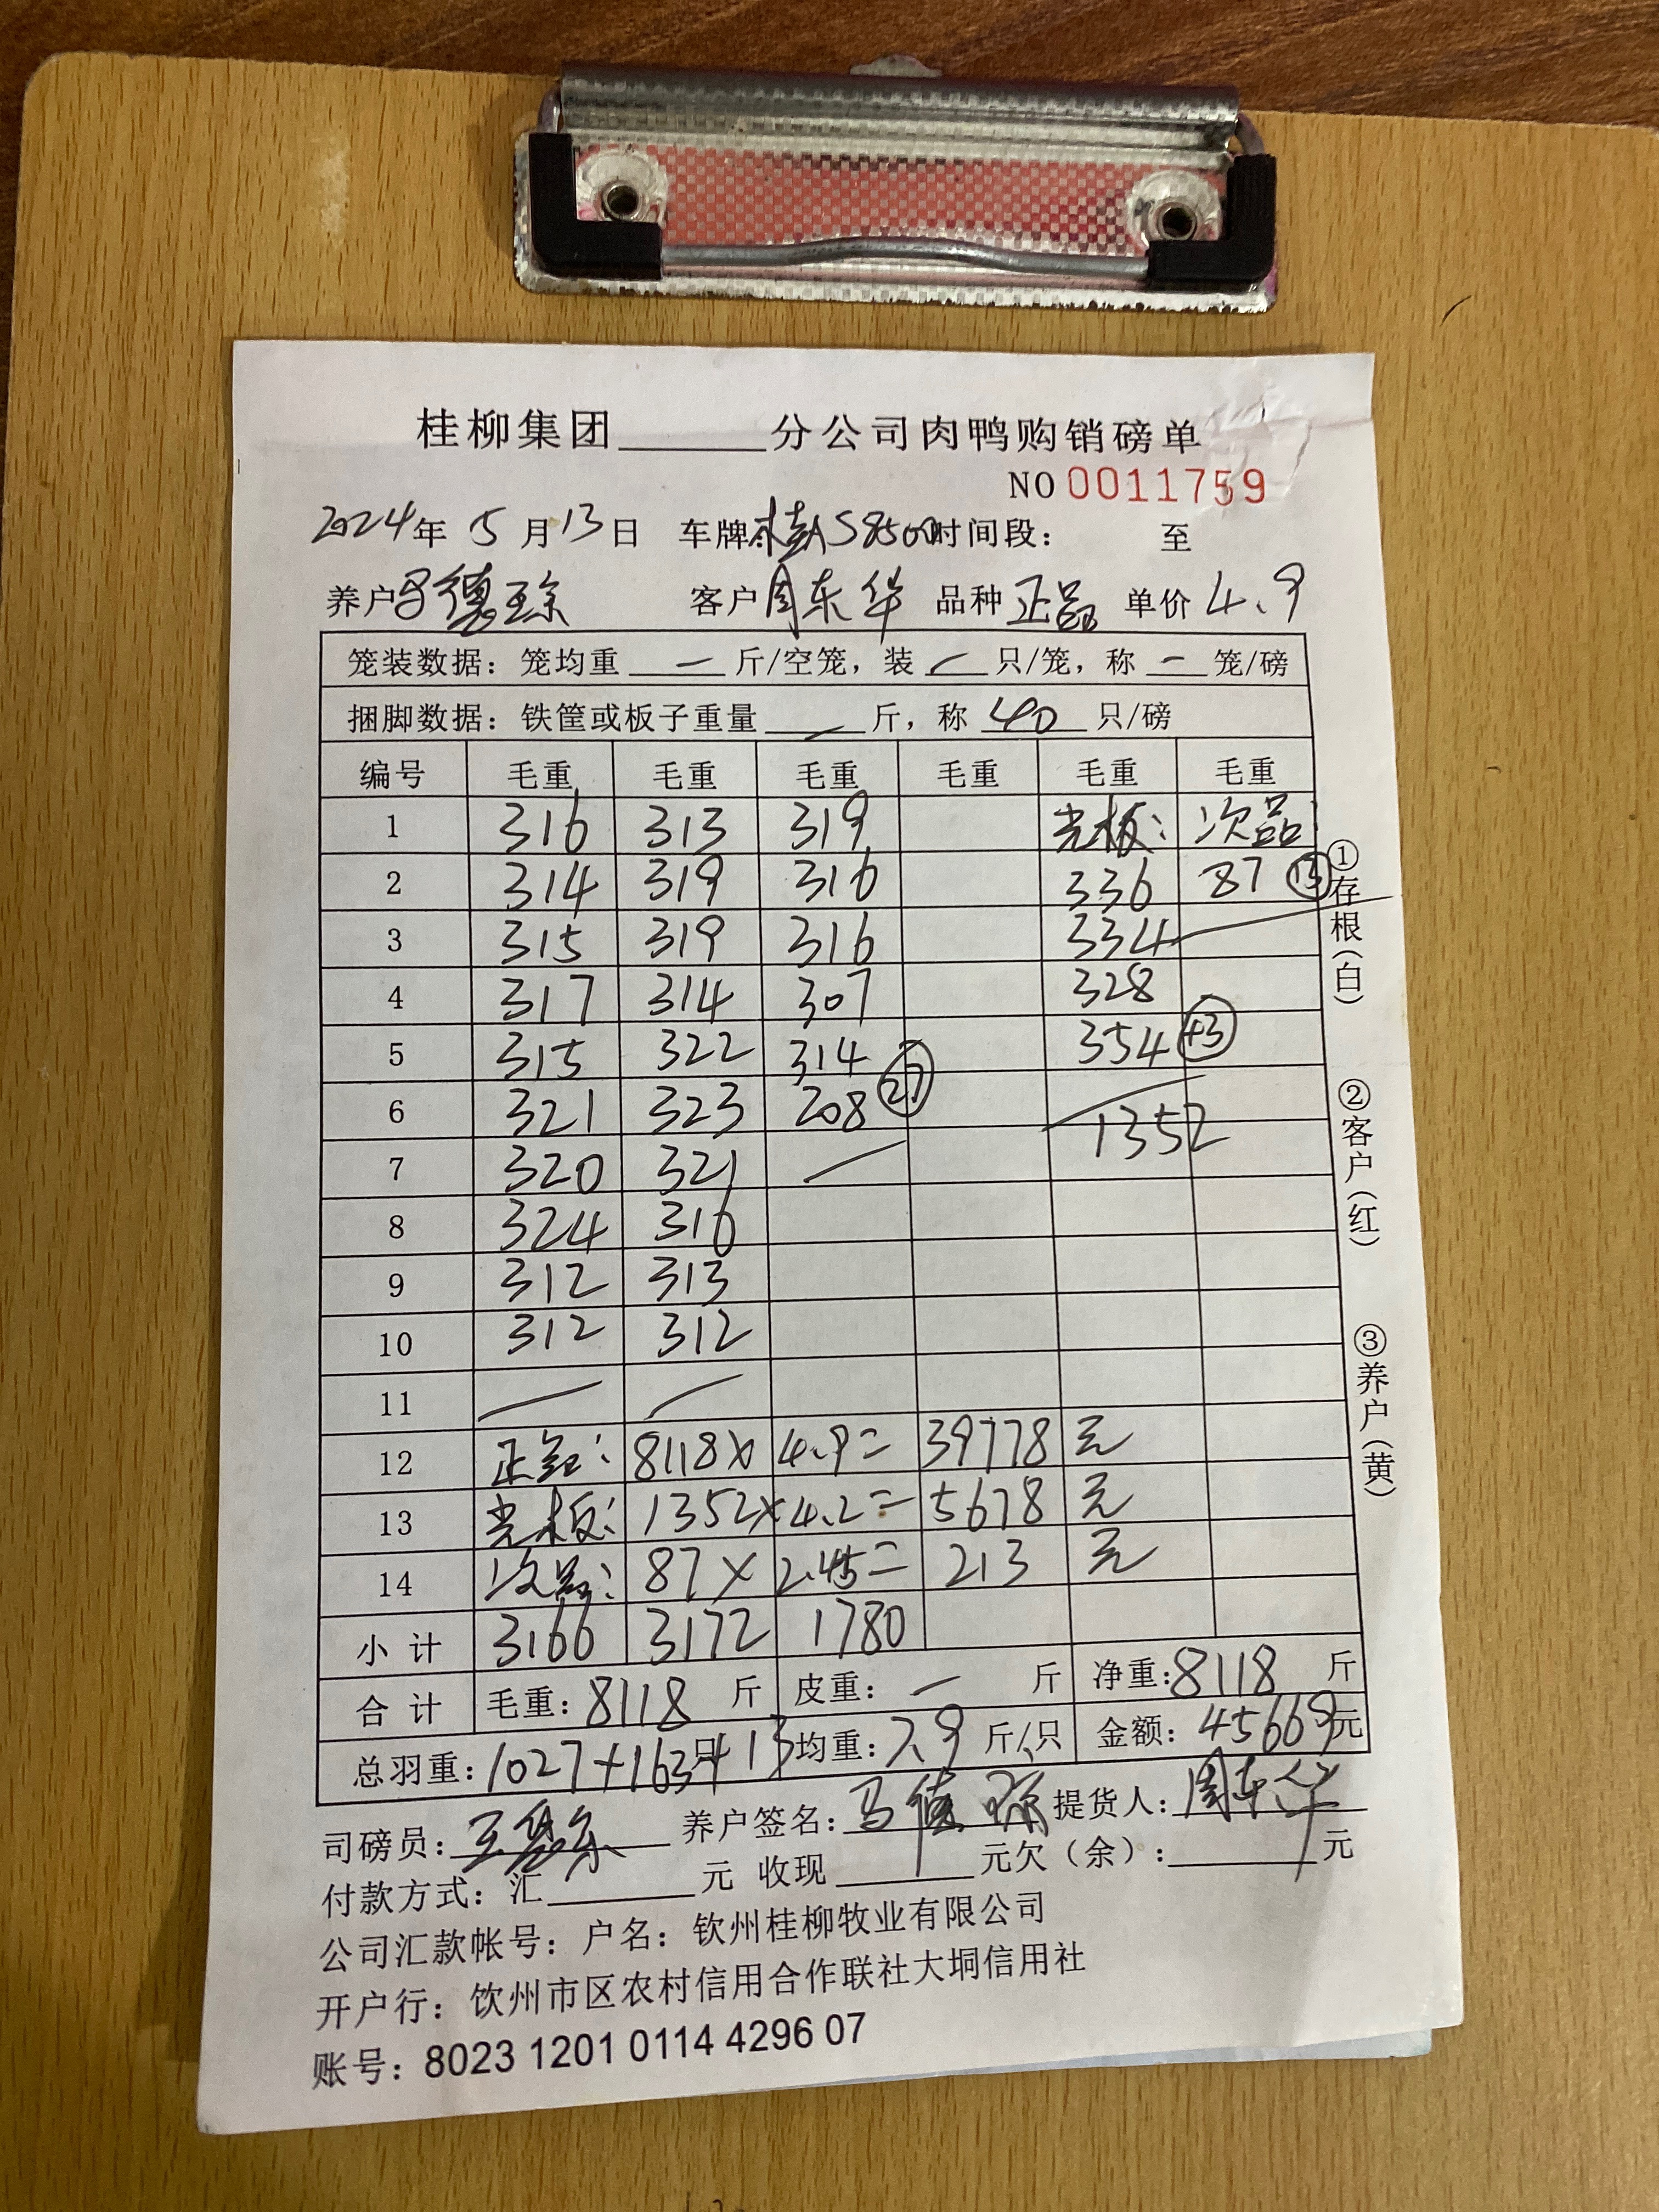 桂柳集团______分公司肉鸭购销磅单
NO 0011759
2024年 5月13日 车牌:桂AS8500时间段: 至
养户 马德琼 客户 周东华 品种 正品 单价 4.9
笼装数据: 笼均重 — 斤/空笼, 装 — 只/笼, 称 — 笼/磅
捆脚数据: 铁筐或板子重量 — 斤, 称 40 只/磅
编号 毛重 毛重 毛重 毛重 毛重 毛重
1 316 313 319 光板: 次品:
2 314 319 316 336 87 ⑬
3 315 319 316 334
4 317 314 307 328
5 315 322 314 354 ㊸
6 321 323 208 ㉗
7 320 321 — 1352
8 324 316
9 312 313
10 312 312
11 — —
12 正品: 8118× 4.9= 39778 元
13 光板: 1352× 4.2= 5678 元
14 次品: 87× 2.45= 213 元
小计 3166 3172 1780
合计 毛重: 8118 斤 皮重: — 斤 净重: 8118 斤
总羽重: 1027+163+13 只 均重: 7.9 斤/只 金额: 45669元
司磅员: 养户签名: 马德琼 提货人: 周东华
付款方式: 汇______元 收现______元欠(余):______元
公司汇款帐号: 户名: 钦州桂柳牧业有限公司
开户行: 钦州市区农村信用合作联社大垌信用社
账号: 8023 1201 0114 4296 07
①存根(白)
②客户(红)
③养户(黄)